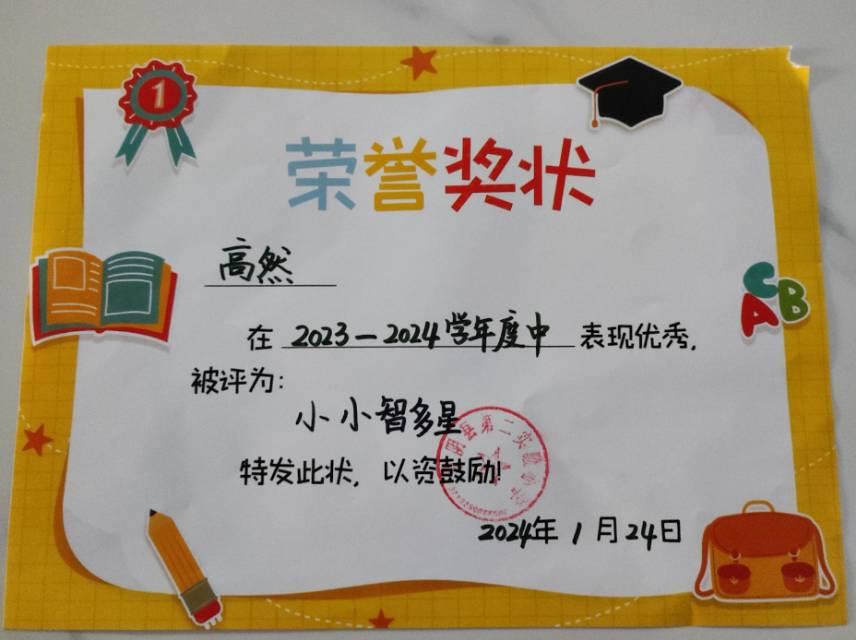 1
荣誉奖状
高然
在 2023-2024学年度中 表现优秀,
被评为:
小小智多星
特发此状, 以资鼓励!
县第二实验
2024年 1月24日
A B C